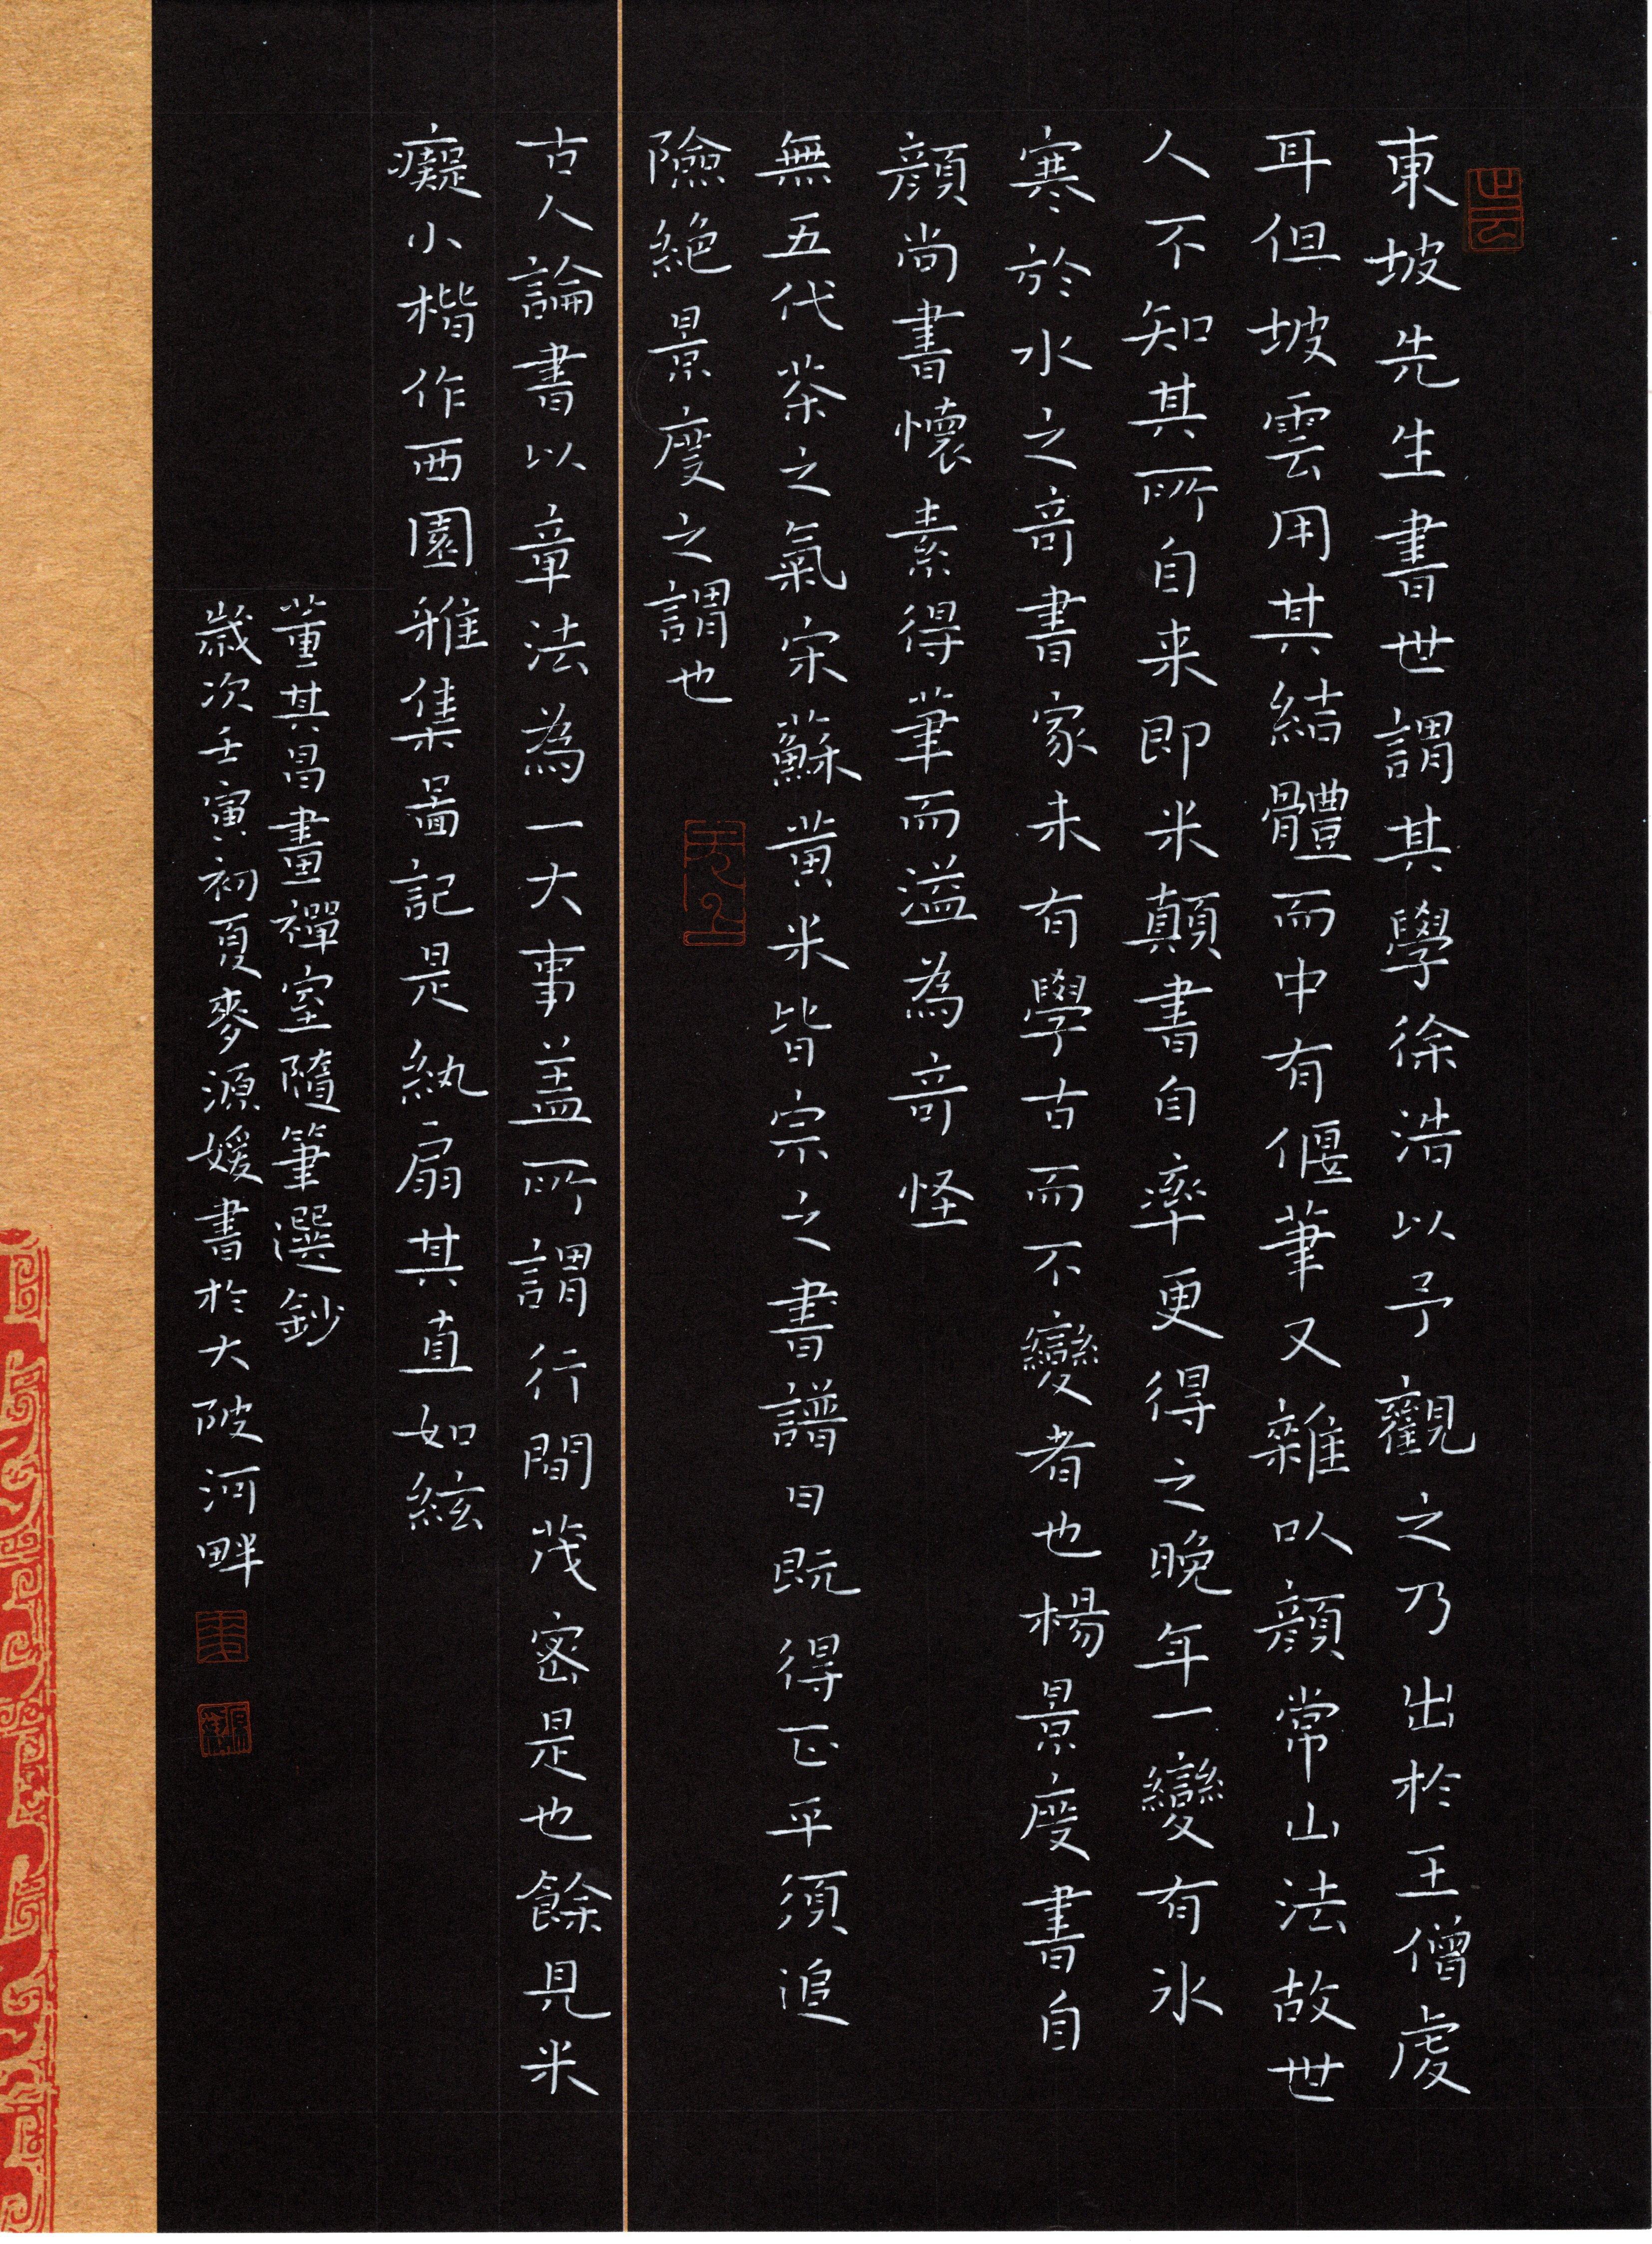 東坡先生書世謂其學徐浩以予觀之乃出於王僧虔
耳但坡雲用其結體而中有偃筆又雜以顏常山法故世
人不知其所自来即米顛書自率更得之晚年一變有氷
寒於水之奇書家未有學古而不變者也楊景度書自
顏尚書懷素得筆而溢為奇怪
無五代茶之氣宋蘇黃米皆宗之書譜曰既得正平須追
險絕景度之謂也
古人論書以章法為一大事盖所謂行間茂密是也餘見米
癡小楷作西園雅集圖記是紈扇其直如絃
董其昌畫禪室隨筆選鈔
歲次壬寅初夏麥源媛書於大陂河畔